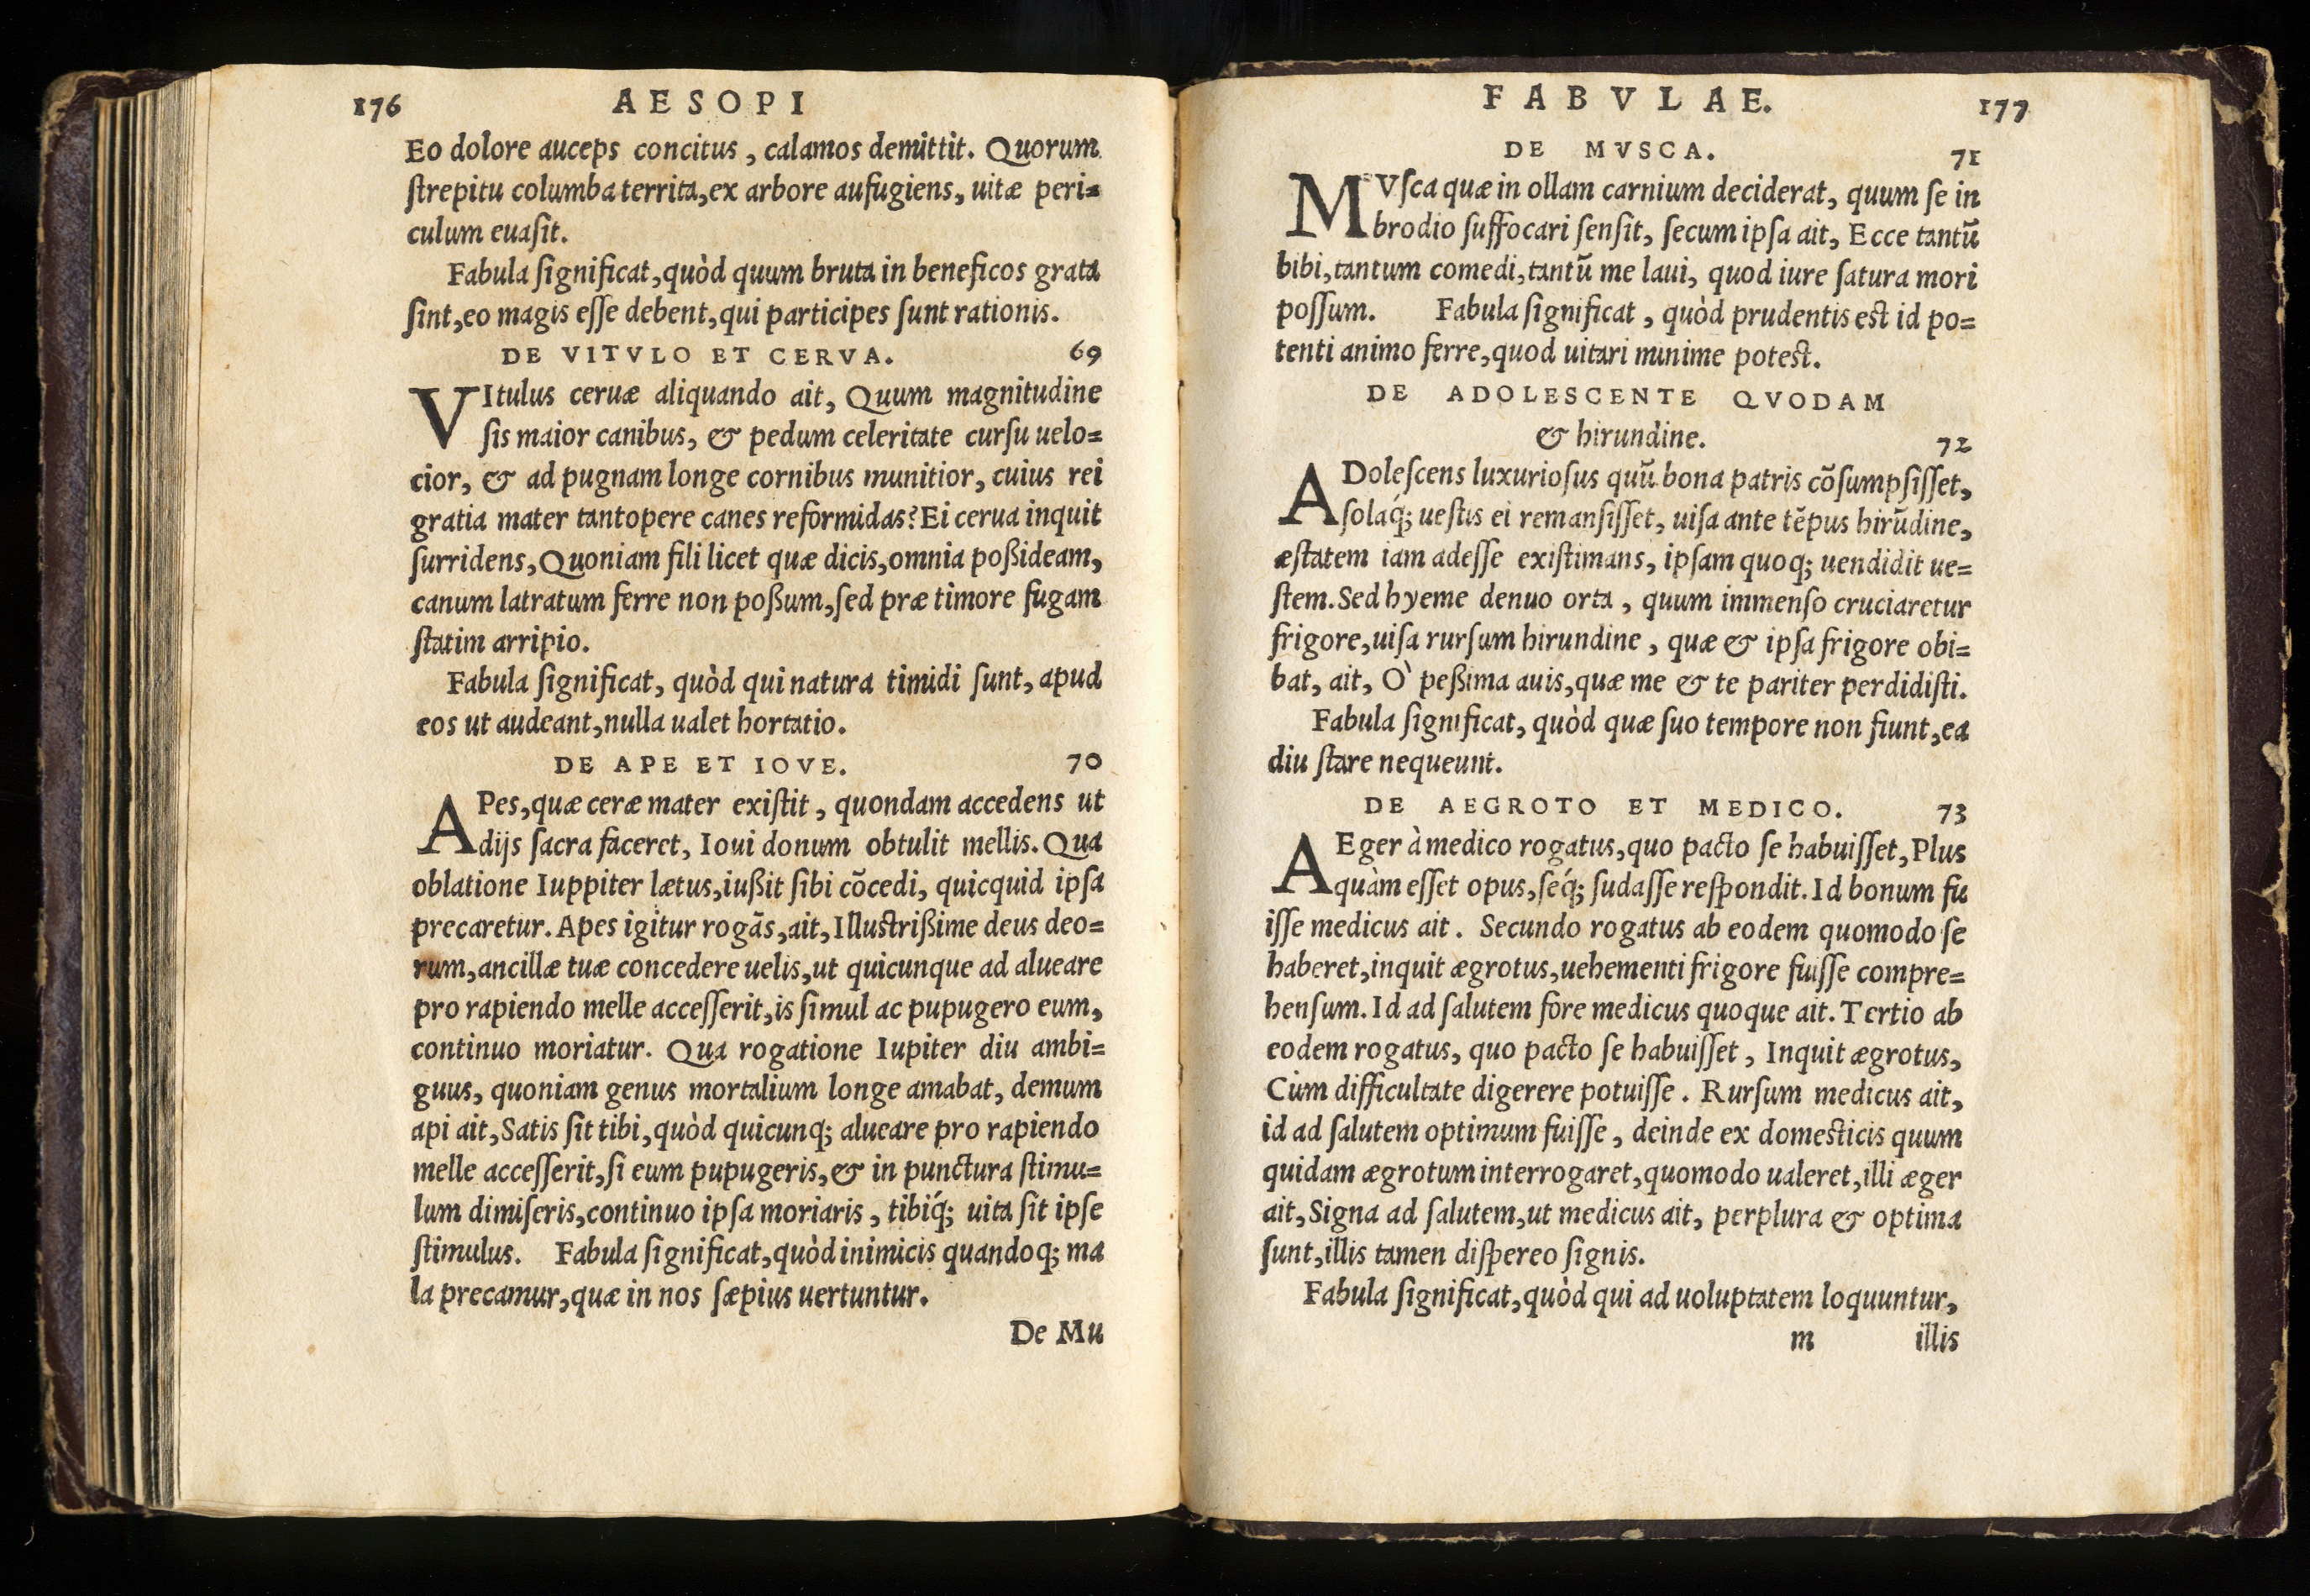 176 AESOPI
Eo dolore auceps concitus, calamos demittit. Quorum
ſtrepitu columba territa, ex arbore aufugiens, uitæ peri=
culum euaſit.
Fabula ſignificat, quòd quum bruta in beneficos grata
ſint, eo magis eſſe debent, qui participes ſunt rationis.
DE VITVLO ET CERVA. 69
VItulus ceruæ aliquando ait, Quum magnitudine
ſis maior canibus, & pedum celeritate curſu uelo=
cior, & ad pugnam longe cornibus munitior, cuius rei
gratia mater tantopere canes reformidas? Ei cerua inquit
ſurridens, Quoniam fili licet quæ dicis, omnia poßideam,
canum latratum ferre non poßum, ſed præ timore fugam
ſtatim arripio.
Fabula ſignificat, quòd qui natura timidi ſunt, apud
eos ut audeant, nulla ualet hortatio.
DE APE ET IOVE. 70
APes, quæ ceræ mater exiſtit, quondam accedens ut
dijs ſacra faceret, Ioui donum obtulit mellis. Qua
oblatione Iuppiter lætus, iußit ſibi cõcedi, quicquid ipſa
precaretur. Apes igitur rogãs, ait, Illuſtrißime deus deo=
rum, ancillæ tuæ concedere uelis, ut quicunque ad alueare
pro rapiendo melle acceſſerit, is ſimul ac pupugero eum,
continuo moriatur. Qua rogatione Iupiter diu ambi=
guus, quoniam genus mortalium longe amabat, demum
api ait, Satis ſit tibi, quòd quicunq; alueare pro rapiendo
melle acceſſerit, ſi eum pupugeris, & in punctura ſtimu=
lum dimiſeris, continuo ipſa moriaris, tibiq́; uita ſit ipſe
ſtimulus. Fabula ſignificat, quòd inimicis quandoq; ma
la precamur, quæ in nos ſæpius uertuntur.
De Mu
FABVLAE. 177
DE MVSCA. 71
MVſca quæ in ollam carnium deciderat, quum ſe in
brodio ſuffocari ſenſit, ſecum ipſa ait, Ecce tantũ
bibi, tantum comedi, tantũ me laui, quod iure ſatura mori
poſſum. Fabula ſignificat, quòd prudentis eſt id po=
tenti animo ferre, quod uitari minime poteſt.
DE ADOLESCENTE QVODAM
& hirundine. 72
ADoleſcens luxurioſus quũ bona patris cõſumpſiſſet,
ſolaq́; ueſtis ei remanſiſſet, uiſa ante tẽpus hirũdine,
æſtatem iam adeſſe exiſtimans, ipſam quoq; uendidit ue=
ſtem. Sed hyeme denuo orta, quum immenſo cruciaretur
frigore, uiſa rurſum hirundine, quæ & ipſa frigore obi=
bat, ait, Ò peßima auis, quæ me & te pariter perdidiſti.
Fabula ſignificat, quòd quæ ſuo tempore non fiunt, ea
diu ſtare nequeunt.
DE AEGROTO ET MEDICO. 73
AEger à medico rogatus, quo pacto ſe habuiſſet, Plus
quàm eſſet opus, ſeq́; ſudaſſe reſpondit. Id bonum fu
iſſe medicus ait. Secundo rogatus ab eodem quomodo ſe
haberet, inquit ægrotus, uehementi frigore fuiſſe compre=
henſum. Id ad ſalutem fore medicus quoque ait. Tertio ab
eodem rogatus, quo pacto ſe habuiſſet, Inquit ægrotus,
Cùm difficultate digerere potuiſſe. Rurſum medicus ait,
id ad ſalutem optimum fuiſſe, deinde ex domeſticis quum
quidam ægrotum interrogaret, quomodo ualeret, illi æger
ait, Signa ad ſalutem, ut medicus ait, perplura & optima
ſunt, illis tamen diſpereo ſignis.
Fabula ſignificat, quòd qui ad uoluptatem loquuntur,
m illis